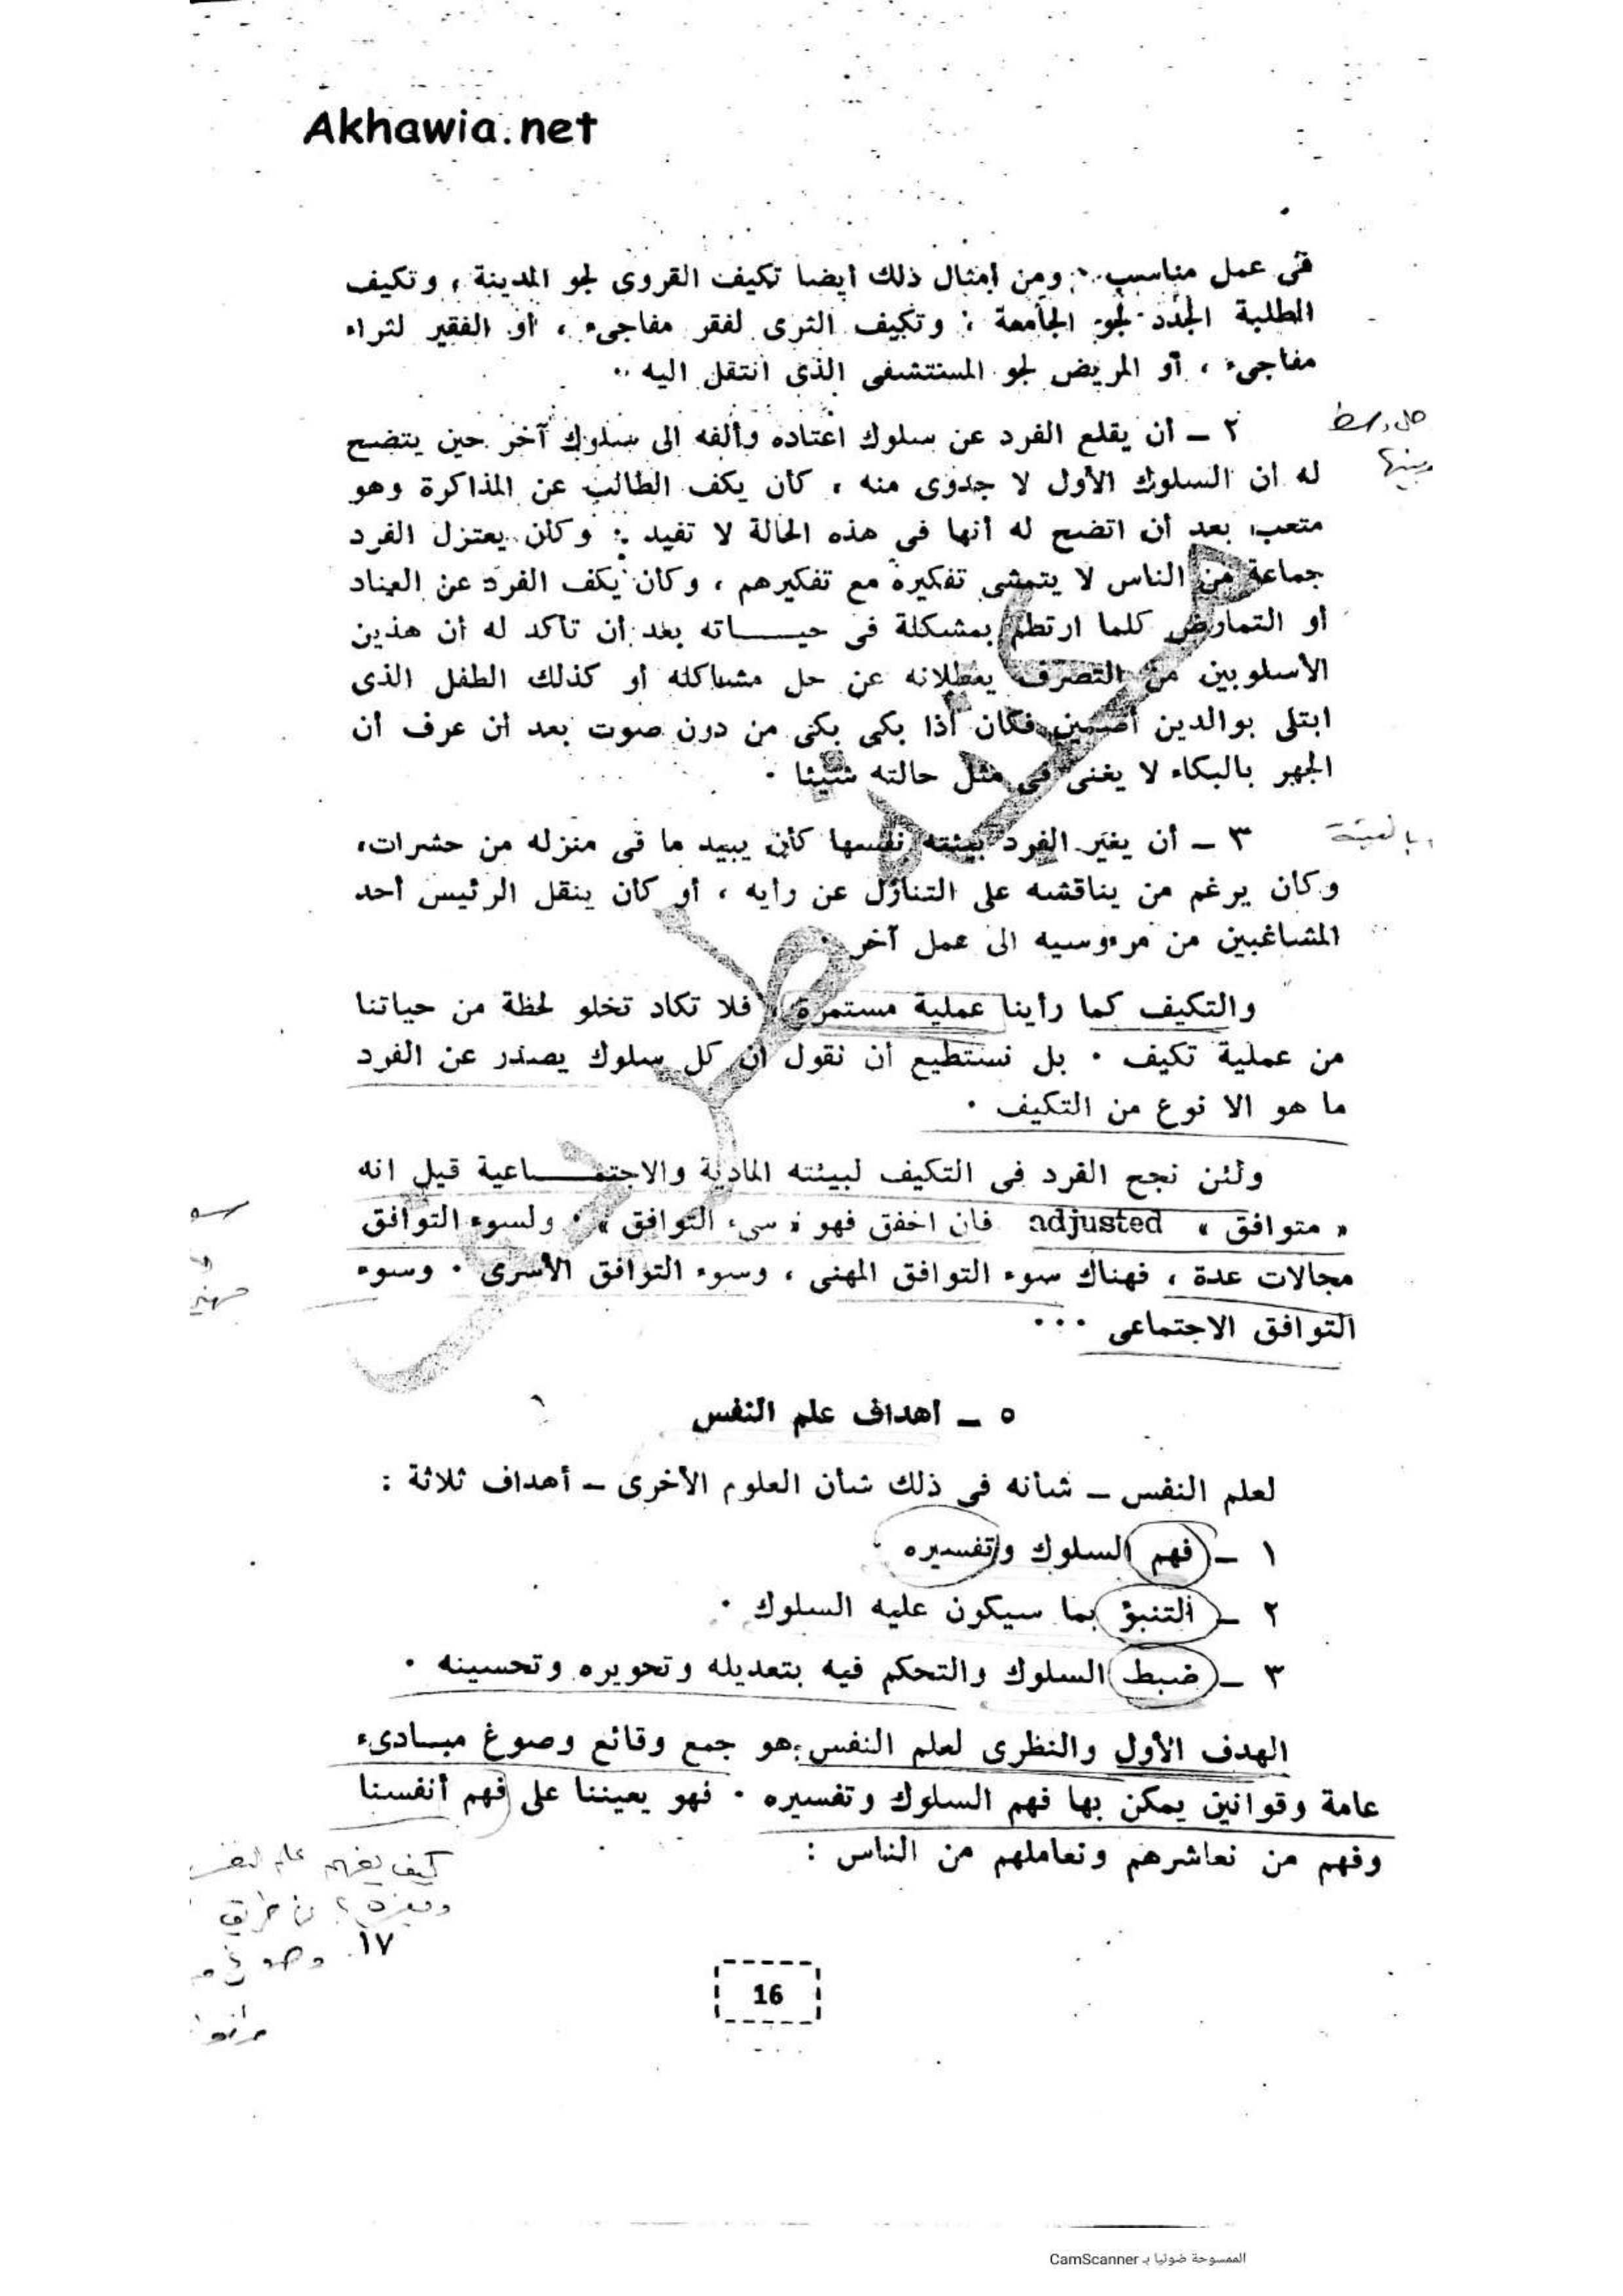 Akhawia.net
فى عمل مناسب . ومن أمثال ذلك أيضا تكيف القروى لجو المدينة ، وتكيف
الطلبة الجدد لجو الجامعة ، وتكيف الثرى لفقر مفاجىء ، أو الفقير لثراء
مفاجىء ، أو المريض لجو المستشفى الذى انتقل اليه .
٢ ــ أن يقلع الفرد عن سلوك اعتاده وألفه الى سلوك آخر حين يتضح
له ان السلوك الأول لا جدوى منه ، كأن يكف الطالب عن المذاكرة وهو
متعب بعد أن اتضح له أنها فى هذه الحالة لا تفيد . وكأن يعتزل الفرد
جماعة من الناس لا يتمشى تفكيره مع تفكيرهم ، وكأن يكف الفرد عن العناد
أو التمارض كلما ارتطم بمشكلة فى حيـــاته بعد أن تأكد له أن هذين
الأسلوبين من التصرف يعطلانه عن حل مشاكله أو كذلك الطفل الذى
ابتلى بوالدين أصمين فكان اذا بكى بكى من دون صوت بعد ان عرف أن
الجهر بالبكاء لا يغنى فى مثل حالته شيئا .
٣ ــ أن يغير الفرد بيئته نفسها كأن يبيد ما فى منزله من حشرات،
وكأن يرغم من يناقشه على التنازل عن رأيه ، أو كأن ينقل الرئيس أحد
المشاغبين من مرءوسيه الى عمل آخر .
والتكيف كما رأينا عملية مستمرة ، فلا تكاد تخلو لحظة من حياتنا
من عملية تكيف . بل نستطيع أن نقول ان كل سلوك يصدر عن الفرد
ما هو الا نوع من التكيف .
ولئن نجح الفرد فى التكيف لبيئته المادية والاجتمـــاعية قيل انه
« متوافق » adjusted فان اخفق فهو « سىء التوافق » . ولسوء التوافق
مجالات عدة ، فهناك سوء التوافق المهنى ، وسوء التوافق الأسرى . وسوء
التوافق الاجتماعى ...
٥ ــ أهداف علم النفس
لعلم النفس ــ شأنه فى ذلك شأن العلوم الأخرى ــ أهداف ثلاثة :
١ ــ فهم السلوك وتفسيره .
٢ ــ التنبؤ بما سيكون عليه السلوك .
٣ ــ ضبط السلوك والتحكم فيه بتعديله وتحويره وتحسينه .
الهدف الأول والنظرى لعلم النفس هو جمع وقائع وصوغ مبـادىء
عامة وقوانين يمكن بها فهم السلوك وتفسيره . فهو يعيننا على فهم أنفسنا
وفهم من نعاشرهم ونعاملهم من الناس :
١٧
16
الممسوحة ضوئيا بـ CamScanner